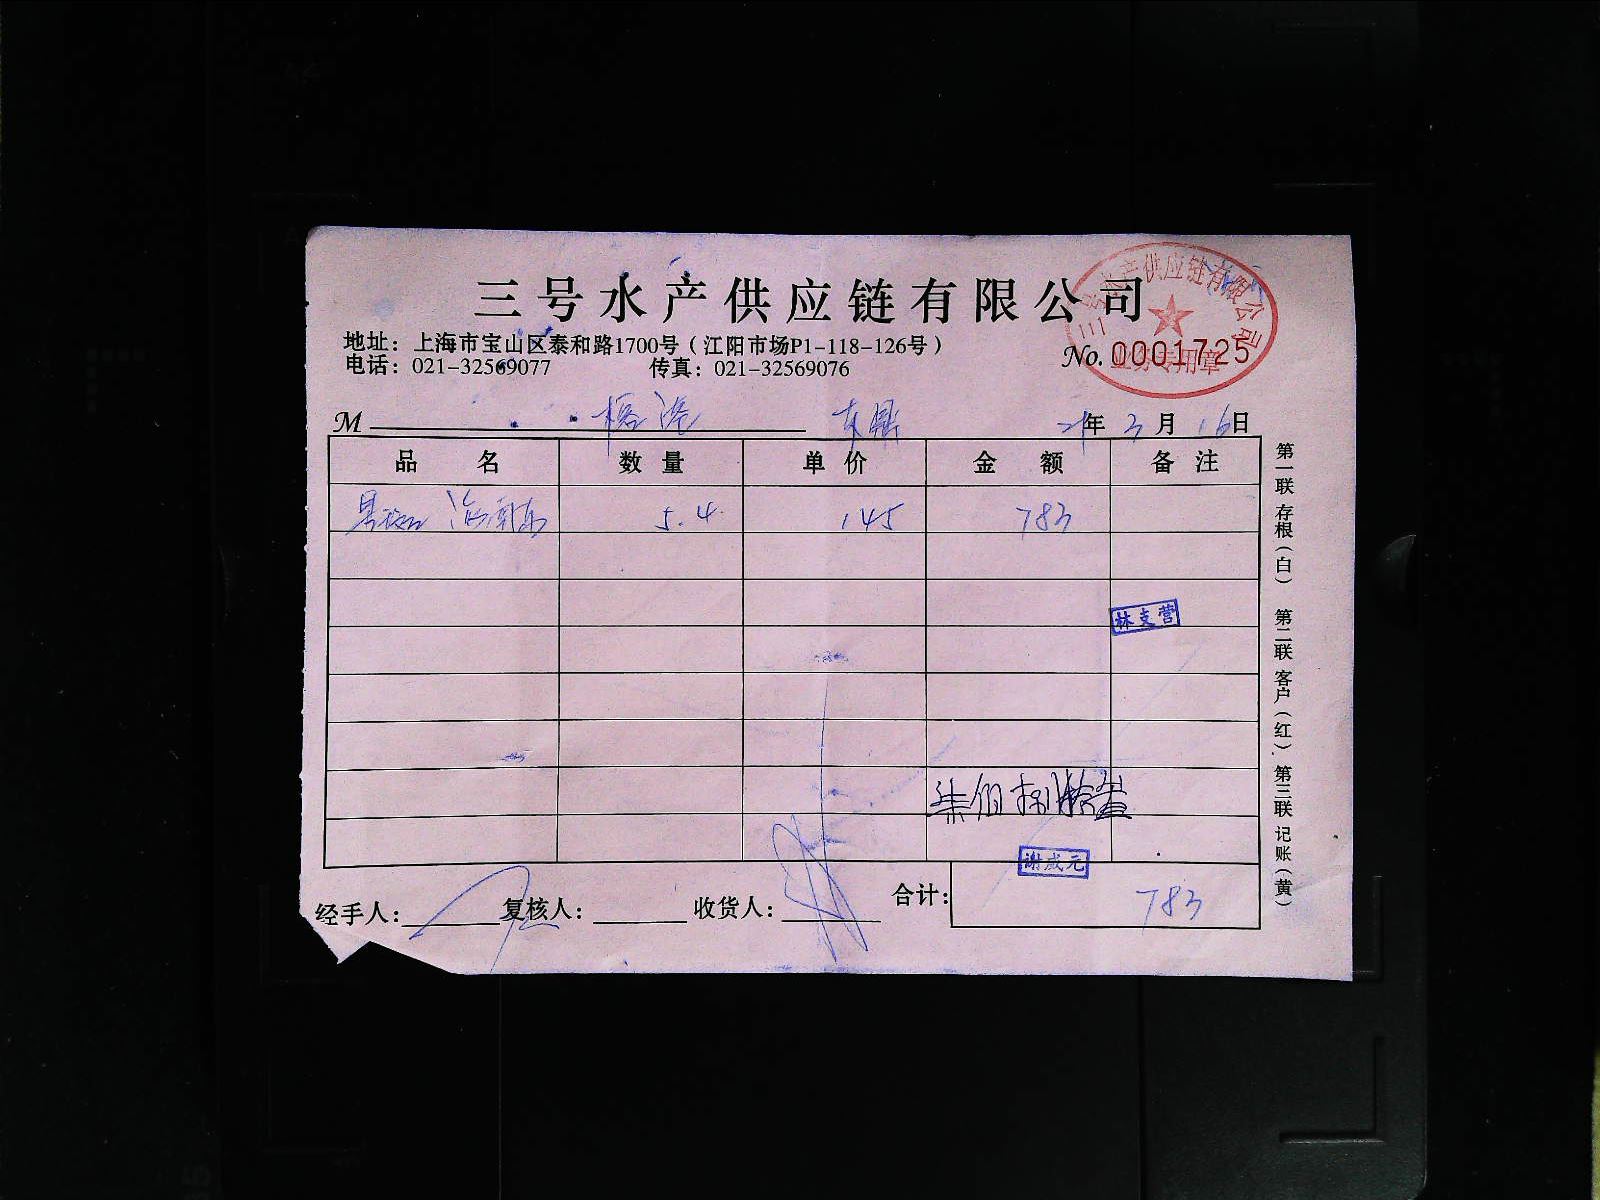 三号水产供应链有限公司
三号水产供应链有限公司
业务专用章
地址：上海市宝山区泰和路1700号（江阳市场P1-118-126号）
电话：021-32569077 传真：021-32569076
No. 0001725
M 21年3月16日
品名 数量 单价 金额 备注
5.4 145 783
林支营
柒佰捌拾叁
谢咸元
合计： 783
经手人： 复核人： 收货人：
第一联 存根（白） 第二联 客户（红） 第三联 记账（黄）